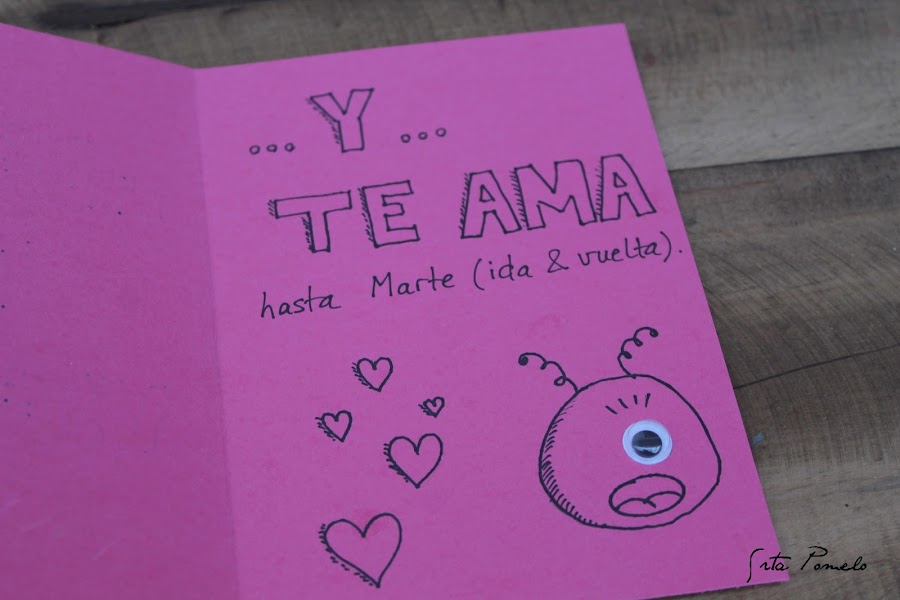 ... Y ...
TE AMA
hasta Marte (ida & vuelta).
Srta Pomelo